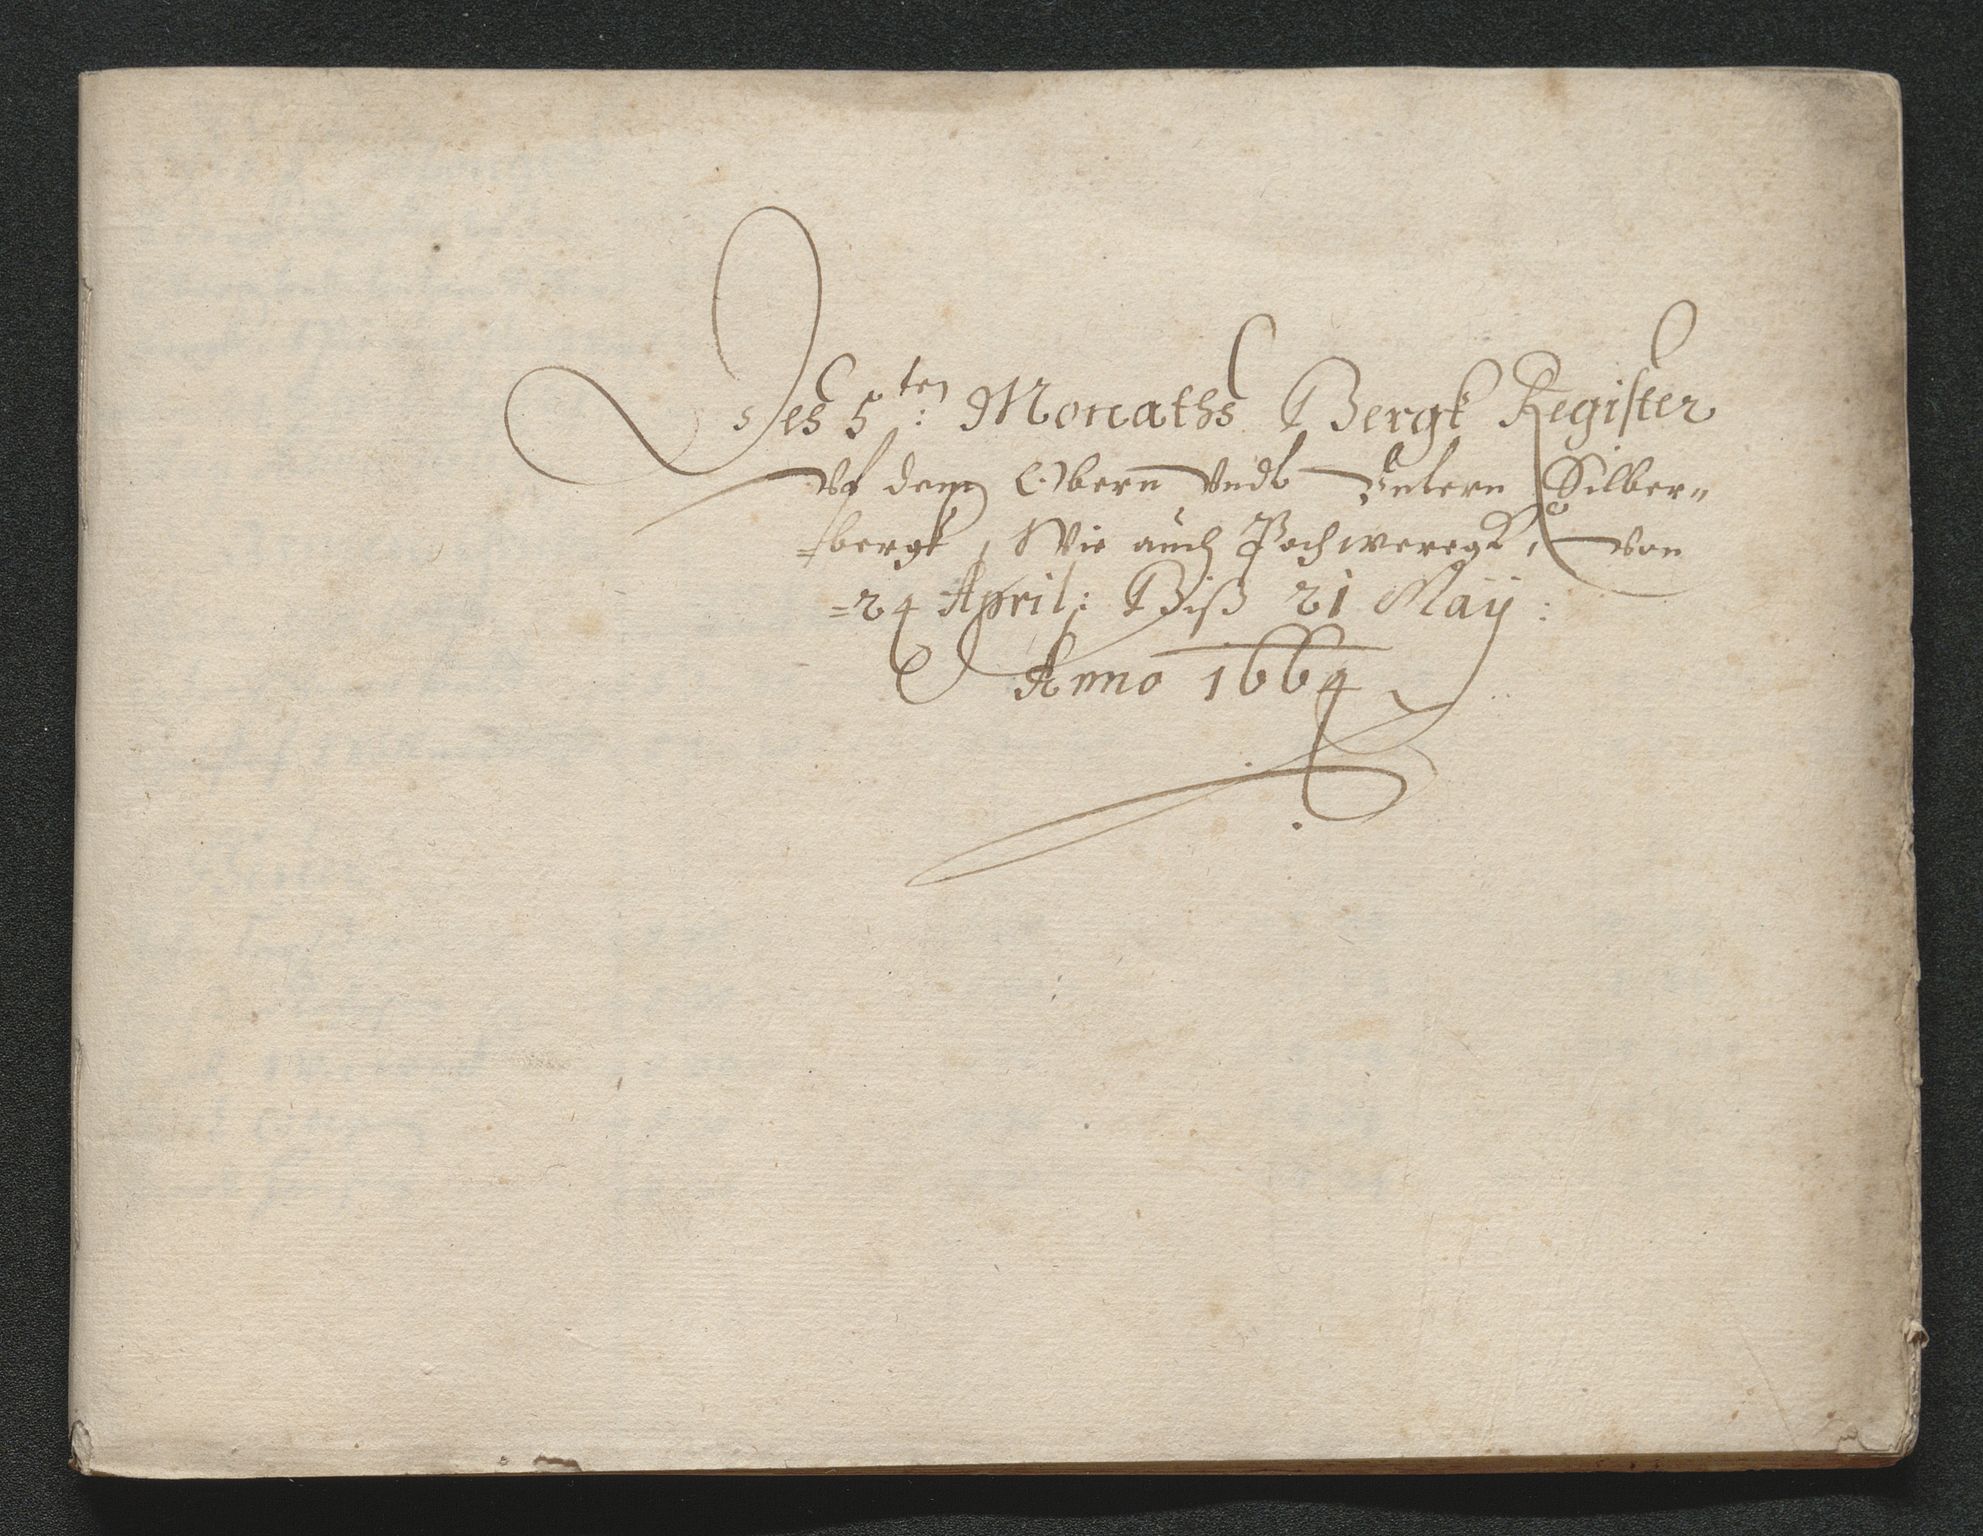 Des 5ten: Monaths Bergk Register
Vf dem Obern Vndt Vntern Silber=
=bergk, Wie auch Pochwergk, von
=24 April: Biß 21 Maÿ:
Anno 1664